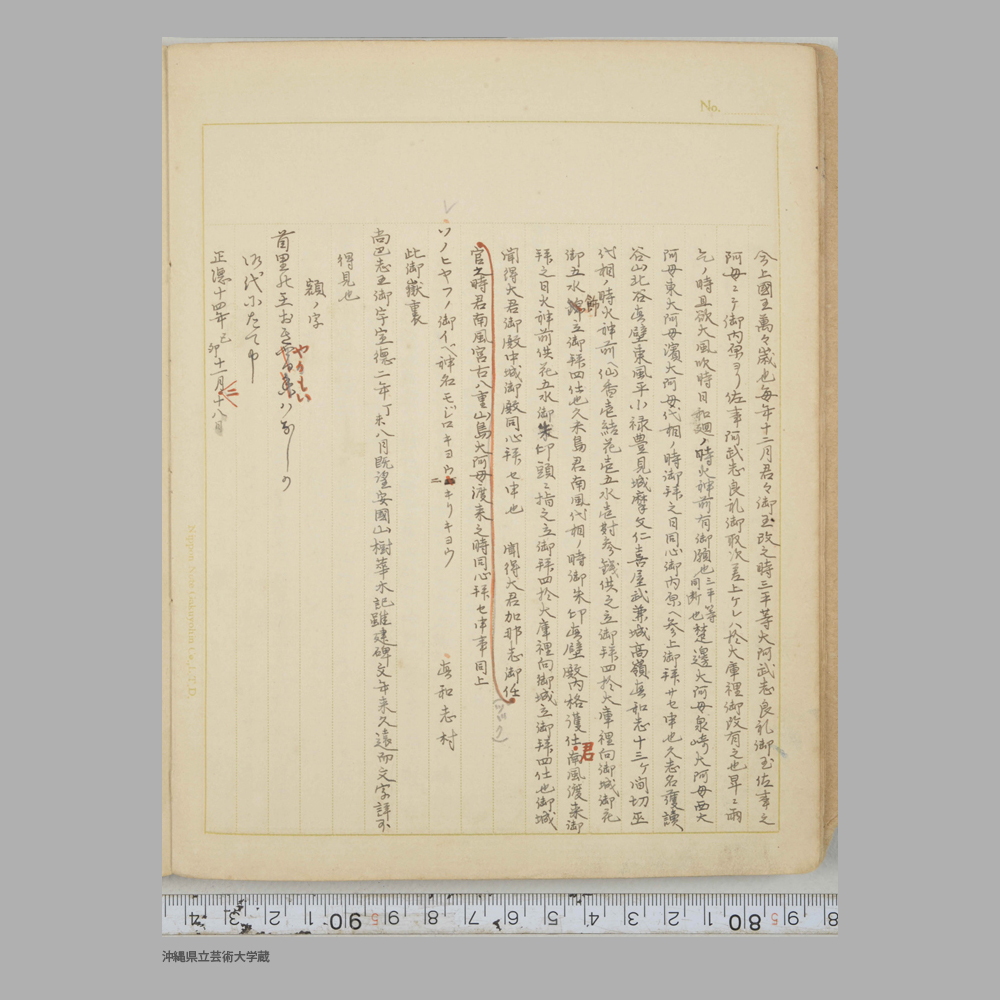 No.
今上國王萬々歳也毎年十二月君々御玉改之時三平等大阿武志良礼御玉佐事之
阿母ニテ御内原ヨリ佐事阿武志良礼御取次差上ケレハ於大庫裡御改有之也旱ニ雨
乞ノ時且欲大風吹時日和廻ノ時火神前有御願也三平等同断也楚邊大阿母泉崎大阿母西大
阿母東大阿母濱大阿母代相ノ時御拜之日同心御内原ヘ参上御拜サセ申也久志名護讀
谷山北谷真壁東風平小禄豊見城摩文仁喜屋武兼城高嶺真和志十三ヶ間切巫
代相ノ時火神前ヘ仙香壱結花壱五水壱對参銭供之立御拜四於大庫裡向御城御花
御五水飾立御拜四仕也久米島君南風代相ノ時御朱印真壁殿内格護仕君南風渡来御
拜之日火神前供花五水御朱印頭ニ指之立御拜四於大庫裡向御城立御拜四仕也御城
聞得大君御殿中城御殿同心拜セ申也 聞得大君加那志御仕
官之時君南風宮古八重山島大阿母渡来之時同心拜セ申事同上
(ツヅク)
ソノヒヤフノ御イベ神名モジロキヨウニキリキヨウ 真和志村
此御嶽裏
尚巴志王御宇宣德二年丁未八月既望安國山樹華木記雖建碑文年来久遠而文字詳不
得見也
額ノ字
首里の王おき
御代にたて申
正德十四年己卯十一月十八日
Nippon Note Gakuyohin Co., LTD.
沖縄県立芸術大学蔵